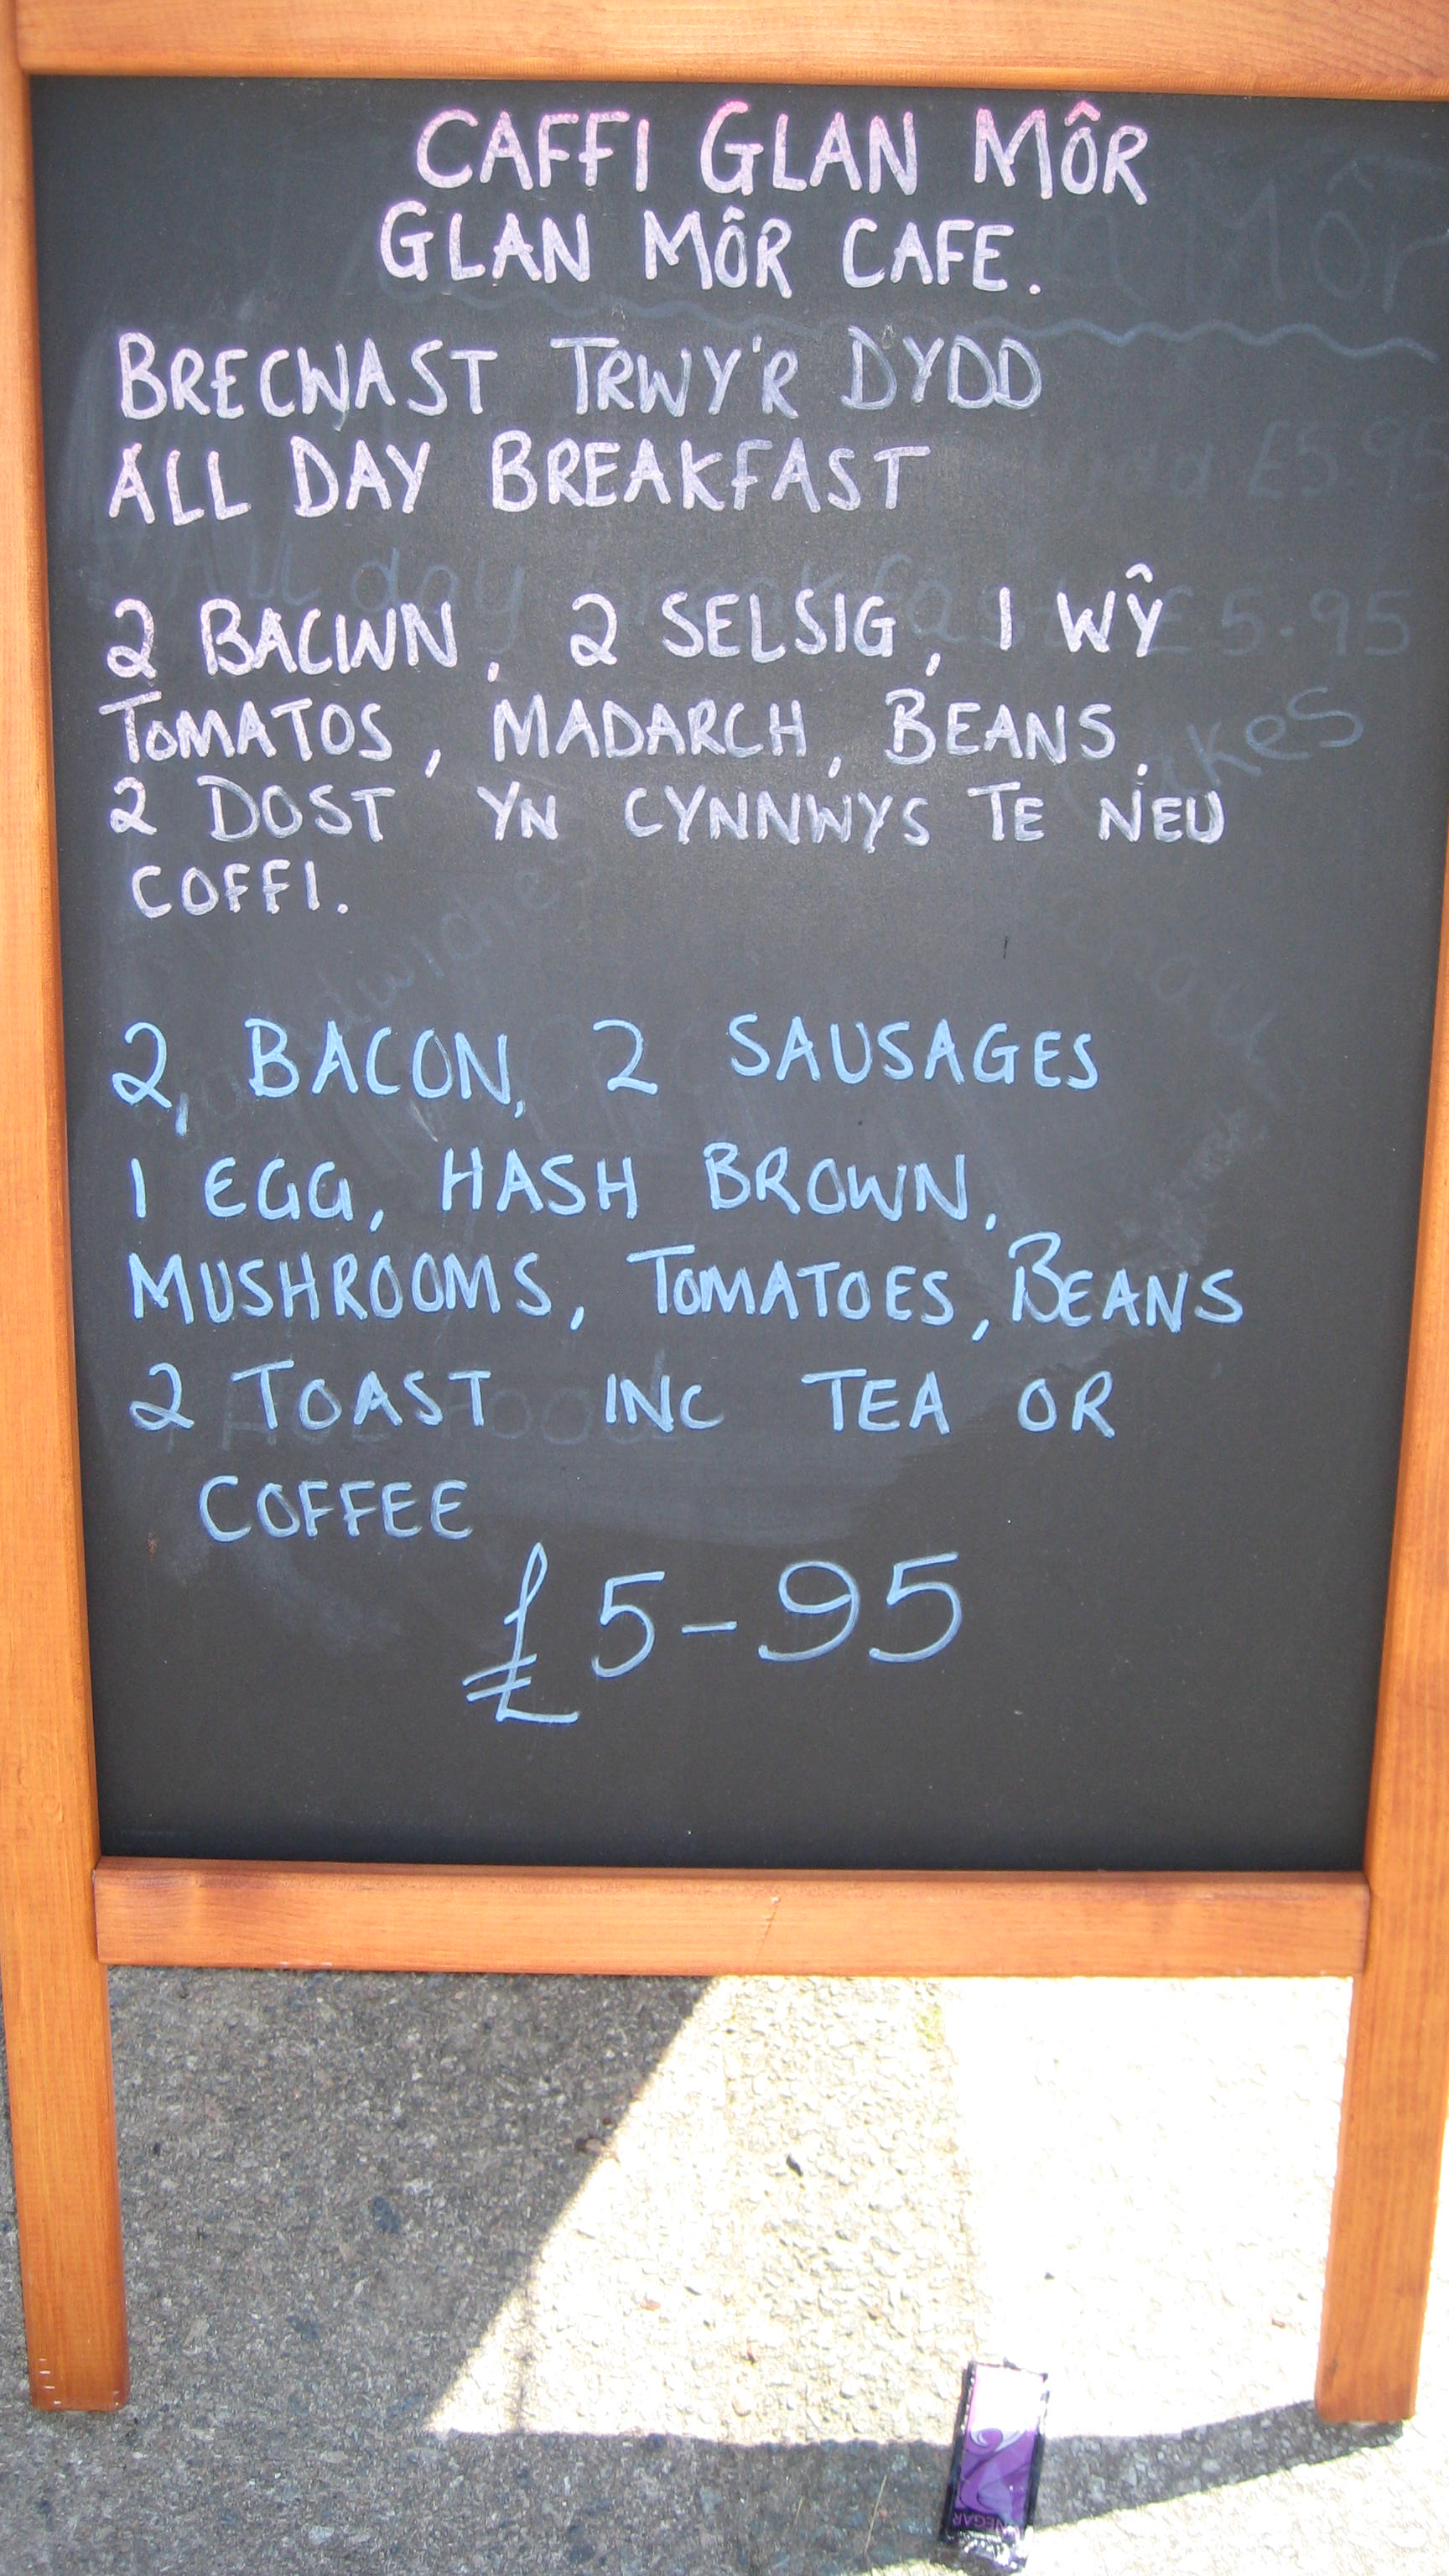 CAFFI GLAN MÔR
GLAN MÔR CAFE.
BRECWAST TRWY'R DYDD
ALL DAY BREAKFAST
2 BACWN, 2 SELSIG, 1 WŶ
TOMATOS, MADARCH, BEANS,
2 DOST YN CYNNWYS TE NEU
COFFI.
2, BACON, 2 SAUSAGES
1 EGG, HASH BROWN,
MUSHROOMS, TOMATOES, BEANS
2 TOAST INC TEA OR
COFFEE
£5-95